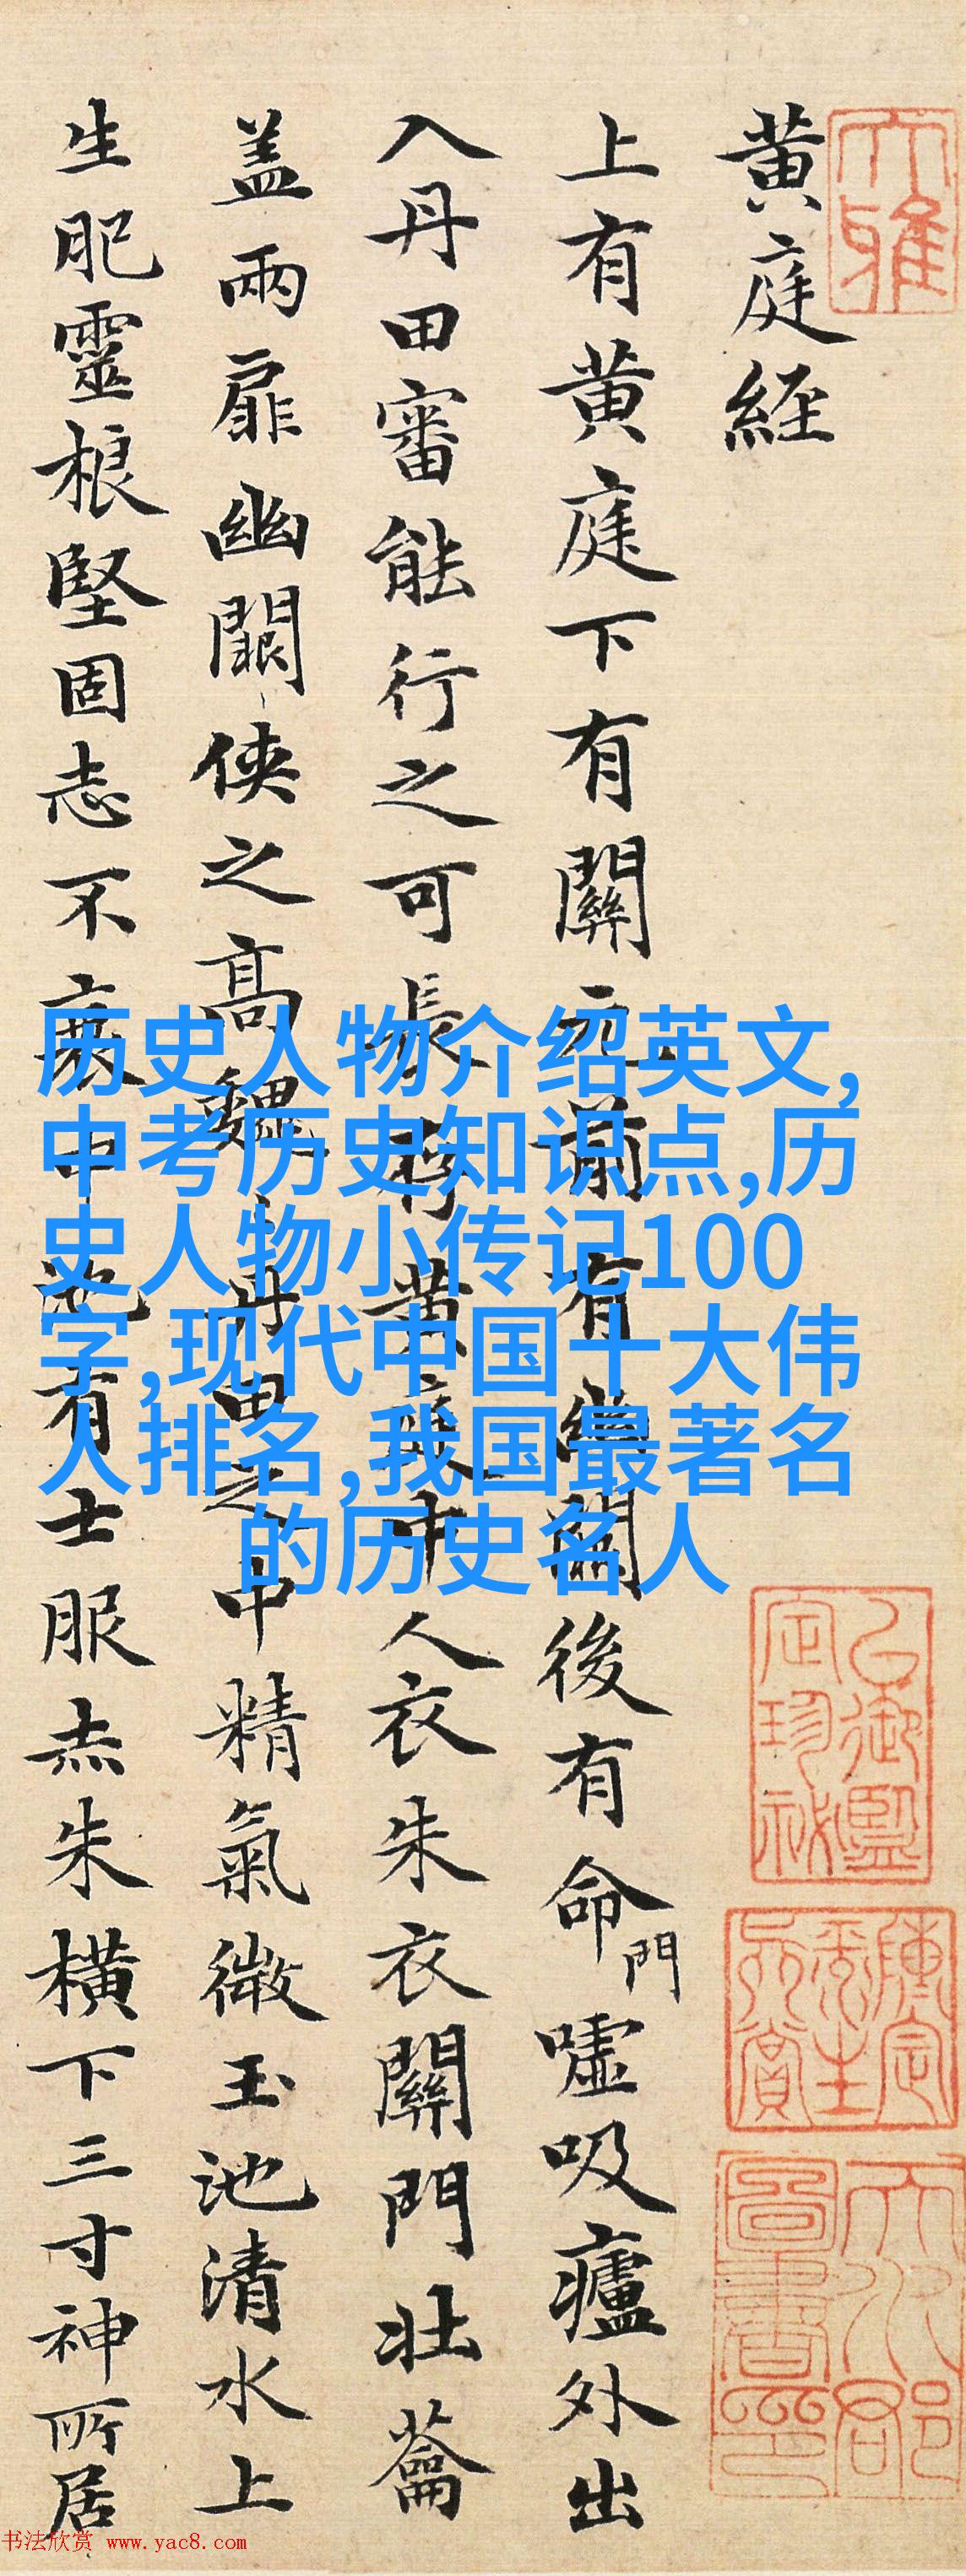 大雅
黄庭經
上有黄庭下有關元前有幽闕後有命門嘘吸廬外出
入丹田審能行之可長存黄庭中人衣朱衣關門壯蘥
盖兩扉幽闕俠之高魏〻丹田之中精氣微玉池清水上
生肥靈根堅固志不衰中池有士服赤朱横下三寸神所居
历史人物介绍英文,
中考历史知识点,历
史人物小传记100
字,现代中国十大伟
人排名,我国最著名
的历史名人
书法欣赏 www.yac8.com